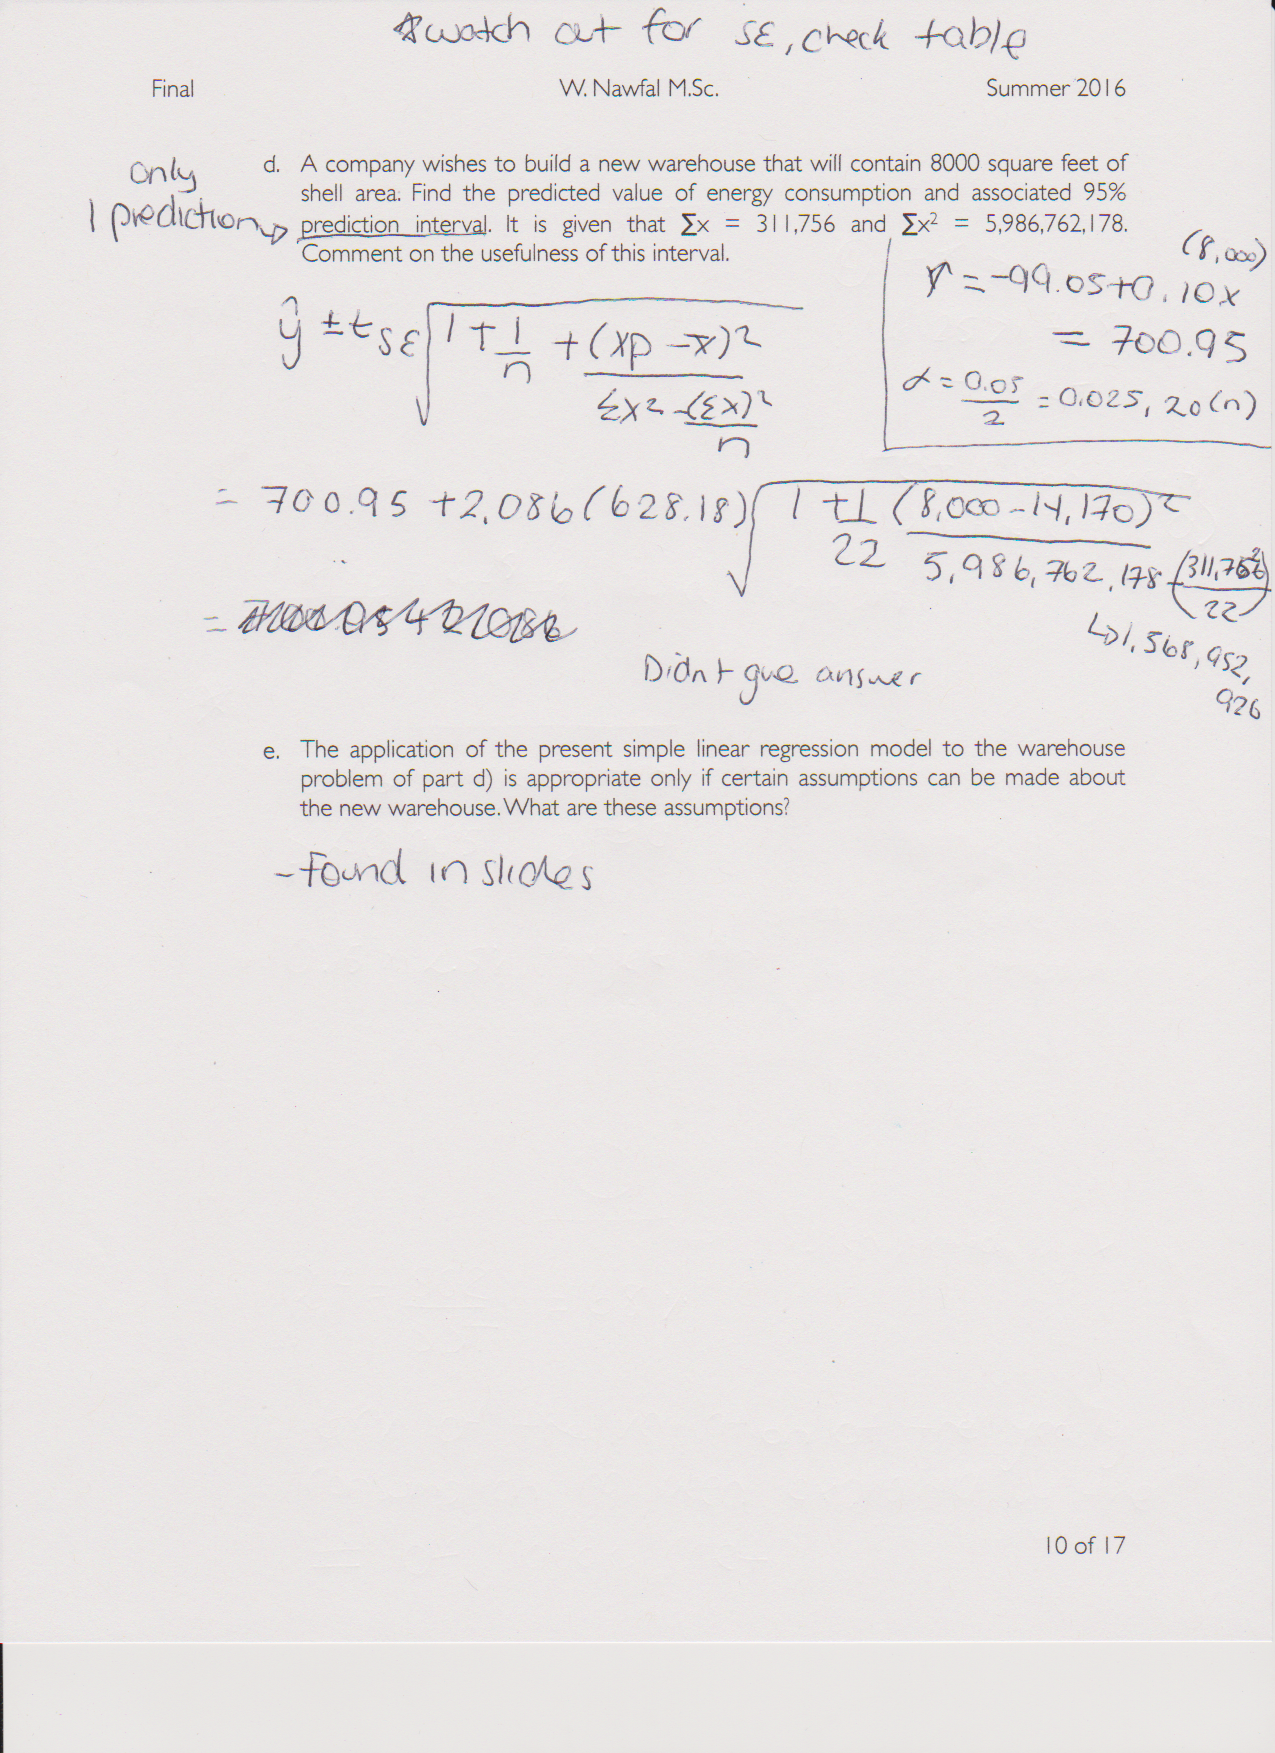 *watch out for SE, check table
Final W. Nawfal M.Sc. Summer 2016
only
1 prediction
d. A company wishes to build a new warehouse that will contain 8000 square feet of
shell area. Find the predicted value of energy consumption and associated 95%
prediction interval. It is given that ∑x = 311,756 and ∑x² = 5,986,762,178.
Comment on the usefulness of this interval.
(8,000)
Ŷ = -99.05+0.10x
= 700.95
α = 0.05/2 = 0.025, 20(n)
ŷ ± t SE √(1 + 1/n + (xp - x̄)²/(Σx² - (Σx)²/n))
= 700.95 + 2.086(628.18) √(1 + 1/22 (8,000 - 14,170)²/(5,986,762,178 - (311,756)²/22))
=
↳1,568,952,
926
Didn't give answer
e. The application of the present simple linear regression model to the warehouse
problem of part d) is appropriate only if certain assumptions can be made about
the new warehouse. What are these assumptions?
- Found in slides
10 of 17